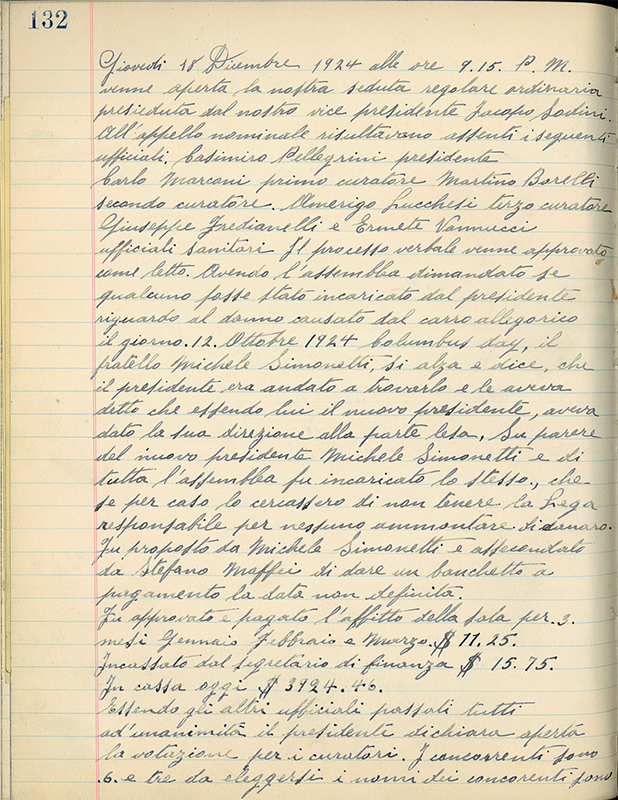 132
Giovedi 18 Dicembre 1924 alle ore 9.15. P. M.
venne aperta la nostra seduta regolare ordinaria
presieduta dal nostro vice presidente Jacopo Sodini.
All'appello nominale risultavano assenti i seguenti
ufficiali. Casimiro Pellegrini presidente
Carlo Marconi primo curatore Martino Borelli
secondo curatore. Amerigo Lucchesi terzo curatore
Giuseppe Fredianelli e Ermete Vannucci
ufficiali sanitari Il processo verbale venne approvato
come letto. Avendo l'assemblea dimandato se
qualcuno fosse stato incaricato dal presidente
riguardo al danno causato dal carro allegorico
il giorno. 12. Ottobre 1924 Columbus day, il
fratello Michele Simonetti, si alza e dice, che
il presidente era andato a trovarlo e le aveva
detto che essendo lui il nuovo presidente, aveva
dato la sua direzione alla parte lesa. Su parere
del nuovo presidente Michele Simonetti e di
tutta l'assemblea fu incaricato lo stesso., che
se per caso lo cercassero di non tenere la Lega
responsabile per nessuno ammontare di danaro.
Fu proposto da Michele Simonetti e assecondato
da Stefano Maffei di dare un banchetto a
pagamento la data non definita.
Fu approvato e pagato l'affitto della sala per. 3.
mesi Gennaio Febbraio e Marzo. $ 11.25.
Incassato dal segretario di finanza $ 15.75.
In cassa oggi $ 3924.46.
Essendo gli altri ufficiali passati tutti
ad'unanimità il presidente dichiara aperta
la votazione per i curatori. I concorrenti sono
.6. e tre da eleggersi i nomi dei concorenti sono